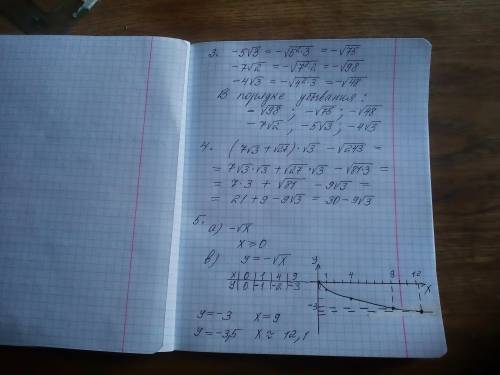 3. -5√3 = -√5²·3 = -√75
-7√2 = -√7²·2 = -√98
-4√3 = -√4²·3 = -√48
В порядке убывания:
-√98; -√75; -√48
-7√2, -5√3; -4√3
4. (7√3 + √27)·√3 - √243 =
= 7√3·√3 + √27·√3 - √81·3 =
= 7·3 + √81 - 9√3 =
= 21 + 9 - 9√3 = 30 - 9√3
5. а) -√x
x ≥ 0
в) y = -√x
x | 0 | 1 | 4 | 9
y | 0 | -1 | -2 | -3
y
1 4 9 12 x
-3
y = -3 x = 9
y = -3,5 x ≈ 12,1